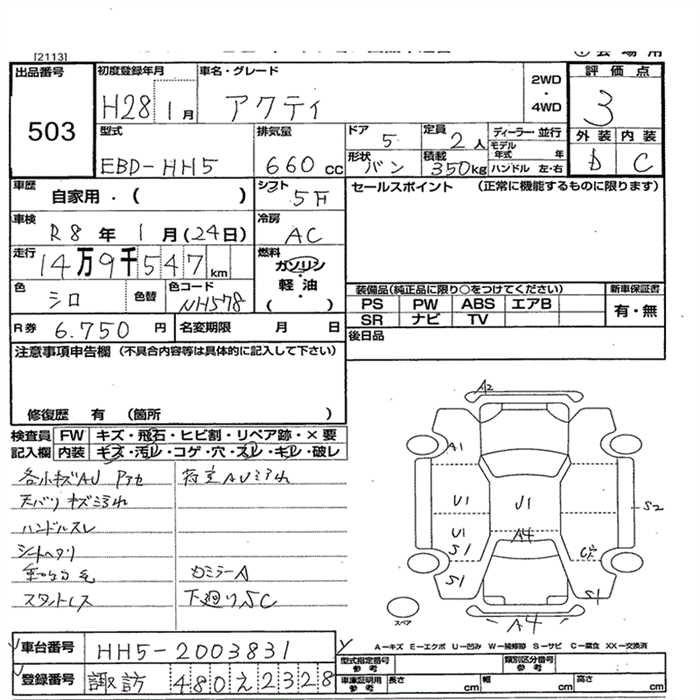 [2113]
出品番号
503
初度登録年月
H28 1月
車名・グレード
アクティ
2WD
・
4WD
評価点
3
外装 内装
D C
型式
EBD-HH5
排気量
660cc
ドア
5
定員
2人
ディーラー・並行
モデル
年式 年
形状
バン
積載
350kg
ハンドル 左・右
車歴
自家用・( )
シフト
5F
セールスポイント (正常に機能するものに限ります)
車検
R8年 1月(24日)
冷房
AC
走行
14万9千547km
燃料
ガソリン
軽油
( )
色
シロ
色替
色コード
NH578
装備品(純正品に限り○をつけてください)
新車保証書
PS PW ABS エアB
SR ナビ TV
有・無
R券 6.750円
名変期限 月 日
後日品
注意事項申告欄 (不具合内容等は具体的に記入して下さい)
修復歴 有 (箇所 )
検査員 FW キズ・飛石・ヒビ割・リペア跡・×要
記入欄 内装 キズ・汚レ・コゲ・穴・スレ・キレ・破レ
各小キズAU
天バリキズ汚れ
ハンドルスレ
シートヘタリ
Dミラー A
下廻りSC
A2
A1
U1
U1
S1
S1
J1
A4
S2
S1
A4
スペア
A－キズ E－エクボ U－凹み W－補修跡 S－サビ C－腐食 XX－交換済
車台番号 HH5-2003831
登録番号 諏訪 480 え 2328
型式指定番号
参考
類別区分番号
参考
車庫証明用
参考
長さ cm 幅 cm 高さ cm